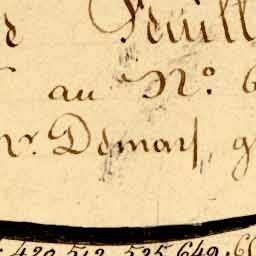 e Feuill
au N.° 6
nr. Demars, g
: 420, 512, 525, 649, 6